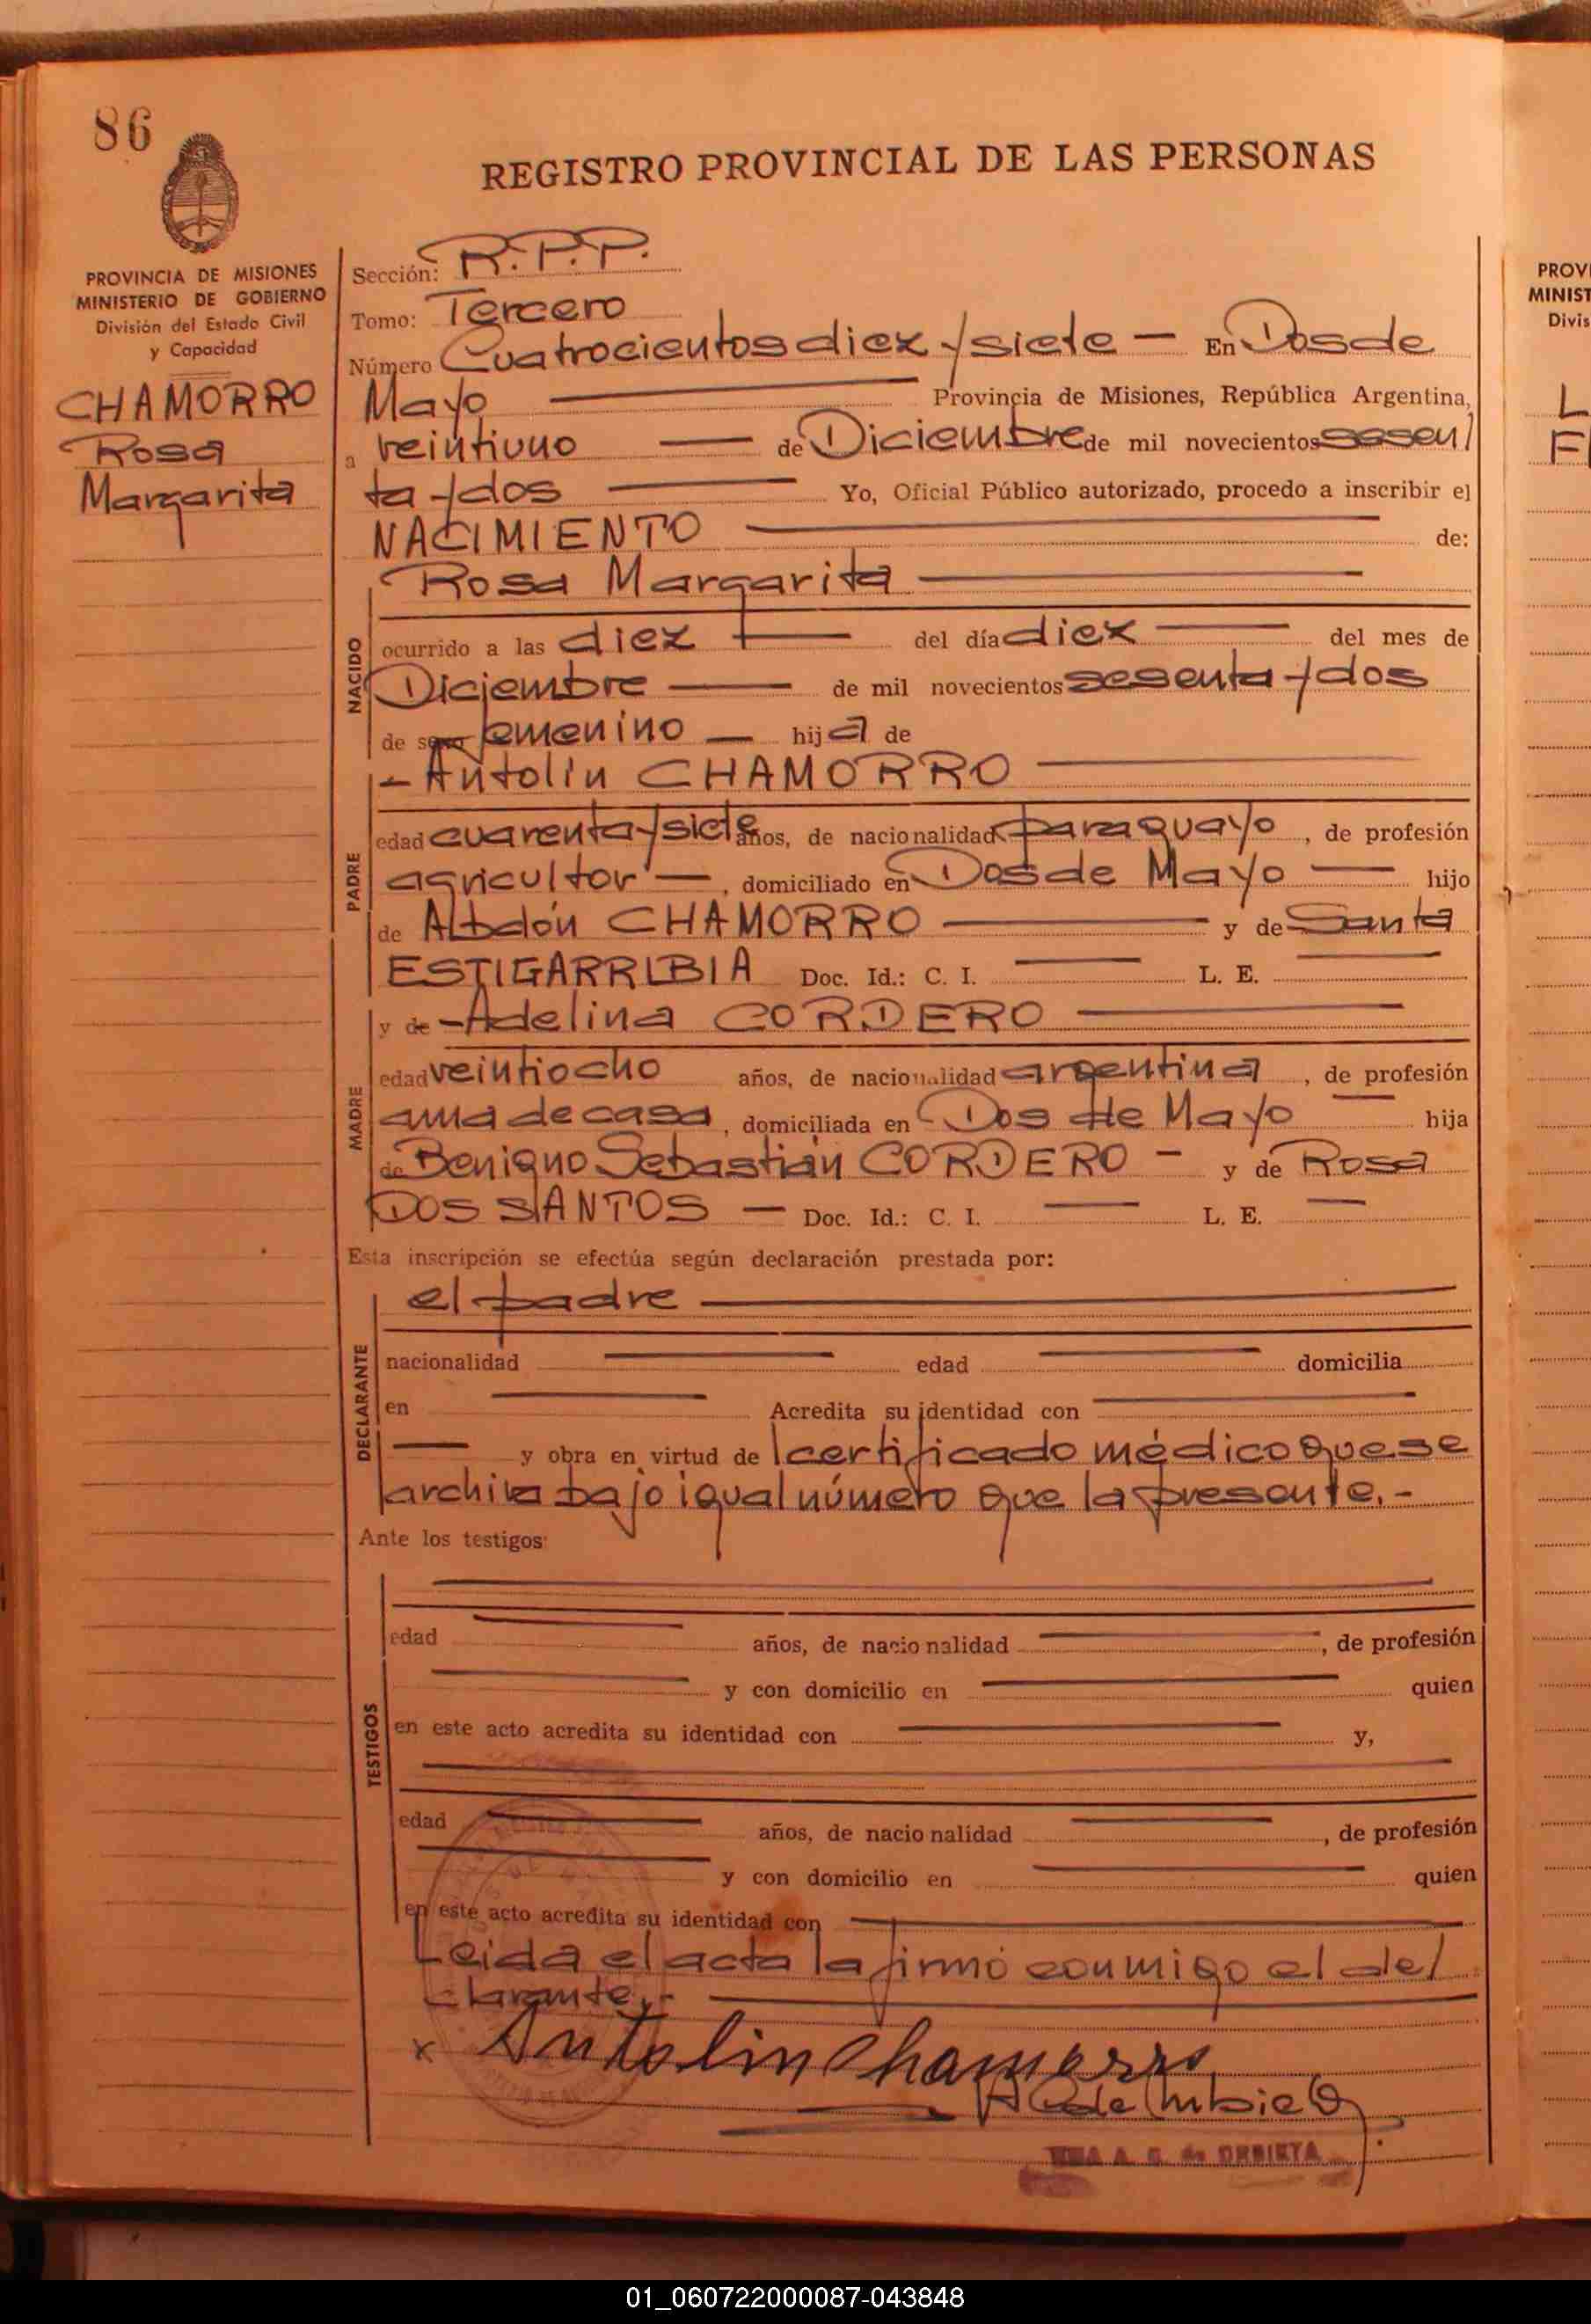 86
REGISTRO PROVINCIAL DE LAS PERSONAS
PROVINCIA DE MISIONES
MINISTERIO DE GOBIERNO
División del Estado Civil
y Capacidad
CHAMORRO
Rosa
Margarita
Sección: R.P.P.
Tomo: Tercero
Número Cuatrocientos diez y siete — En Dos de
Mayo — Provincia de Misiones, República Argentina,
a veintiuno — de Diciembre de mil novecientos sesen
ta y dos — Yo, Oficial Público autorizado, procedo a inscribir el
NACIMIENTO — de:
Rosa Margarita —
NACIDO
ocurrido a las diez — del día diez — del mes de
Diciembre — de mil novecientos sesenta y dos
de sexo femenino — hija de
- Antolin CHAMORRO —
PADRE
edad cuarenta y siete años, de nacionalidad paraguayo, de profesión
agricultor —, domiciliado en Dos de Mayo — hijo
de Abdón CHAMORRO — y de Santa
ESTIGARRIBIA Doc. Id.: C. I. — L. E. —
y de - Adelina CORDERO —
MADRE
edad veintiocho años, de nacionalidad argentina, de profesión
ama de casa, domiciliada en Dos de Mayo — hija
de Benigno Sebastián CORDERO — y de Rosa
DOS SANTOS — Doc. Id.: C. I. — L. E. —
Esta inscripción se efectúa según declaración prestada por:
el padre —
DECLARANTE
nacionalidad — edad — domicilia
en — Acredita su identidad con —
— y obra en virtud de certificado médico que se
archiva bajo igual número que la presente.-
Ante los testigos:
TESTIGOS
edad — años, de nacionalidad —, de profesión
— y con domicilio en — quien
en este acto acredita su identidad con — y,
edad — años, de nacionalidad —, de profesión
— y con domicilio en — quien
en este acto acredita su identidad con —
Leida el acta la firmó conmigo el de
clarante.-
x Antolin Chamorro
A. G. de URBIETA
PROVI
MINIST
Divis
01_060722000087-043848